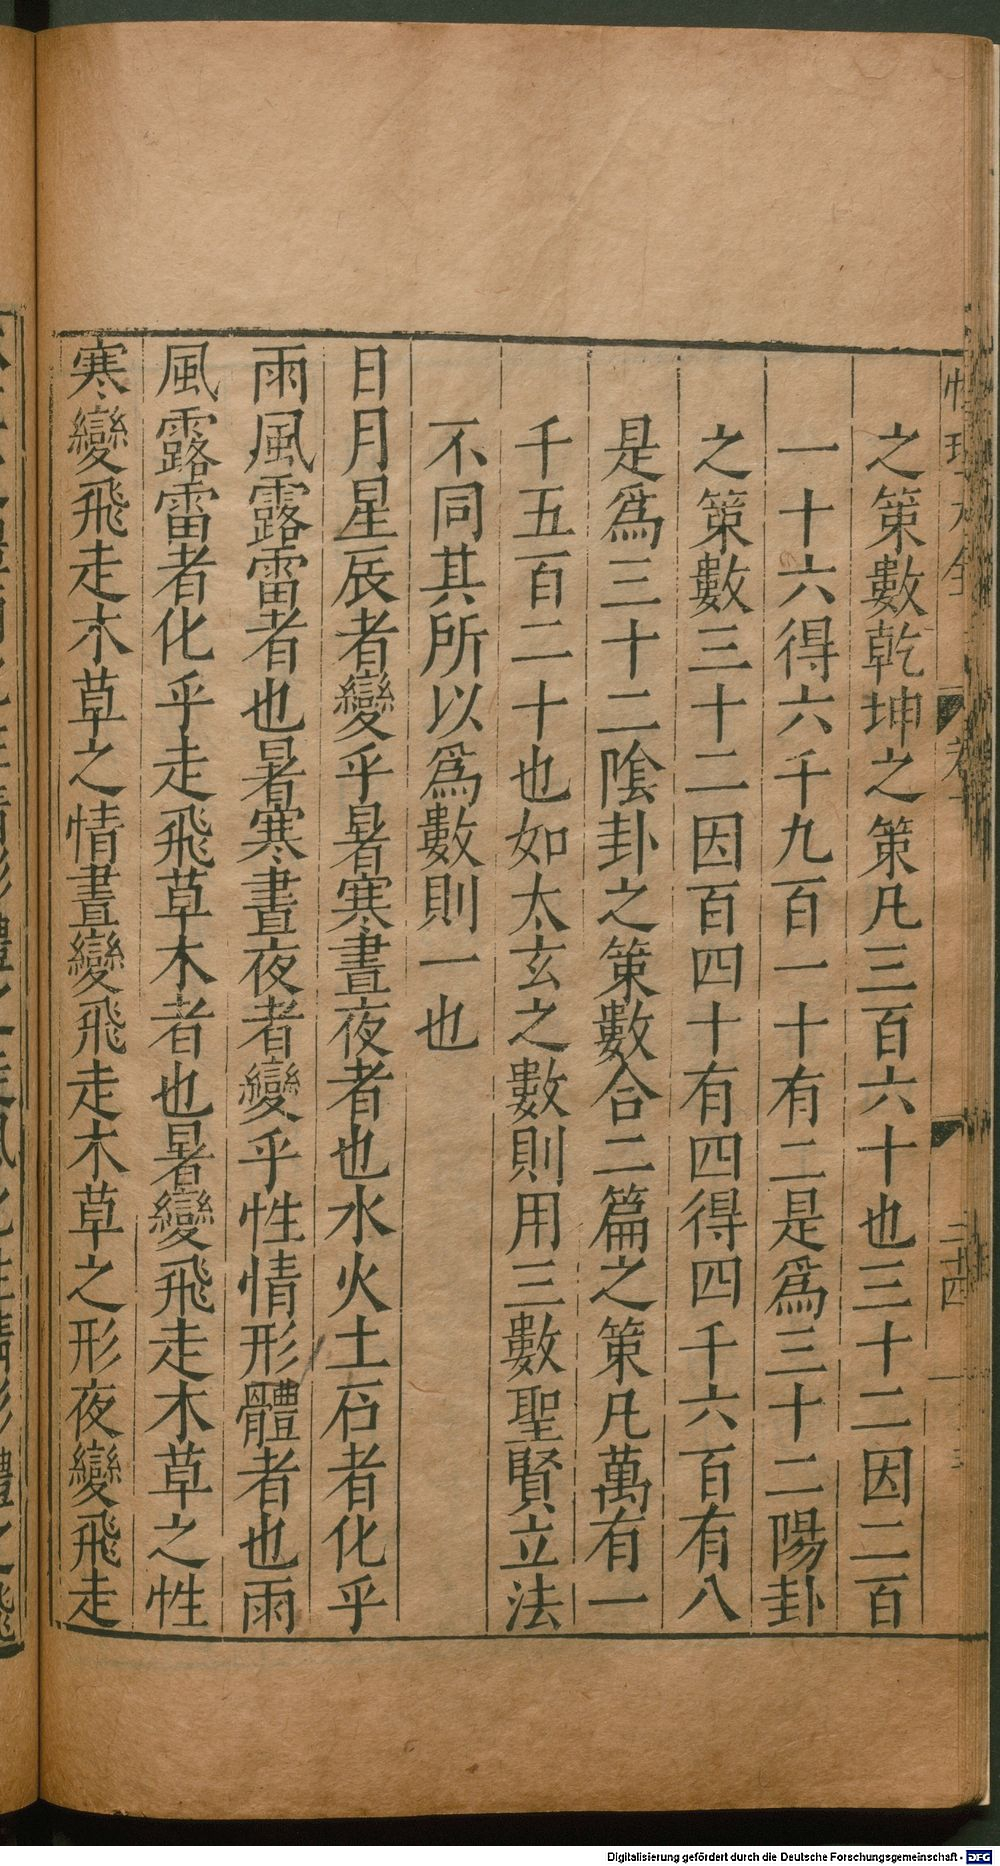 之策數乾坤之策凡三百六十也三十二因二百
一十六得六千九百一十有二是爲三十二陽卦
之策數三十二因百四十有四得四千六百有八
是爲三十二陰卦之策數合二篇之策凡萬有一
千五百二十也如太玄之數則用三數聖賢立法
不同其所以爲數則一也
日月星辰者變乎暑寒晝夜者也水火土石者化乎
雨風露雷者也暑寒晝夜者變乎性情形體者也雨
風露雷者化乎走飛草木者也暑變飛走木草之性
寒變飛走木草之情晝變飛走木草之形夜變飛走
Digitalisierung gefördert durch die Deutsche Forschungsgemeinschaft - DFG